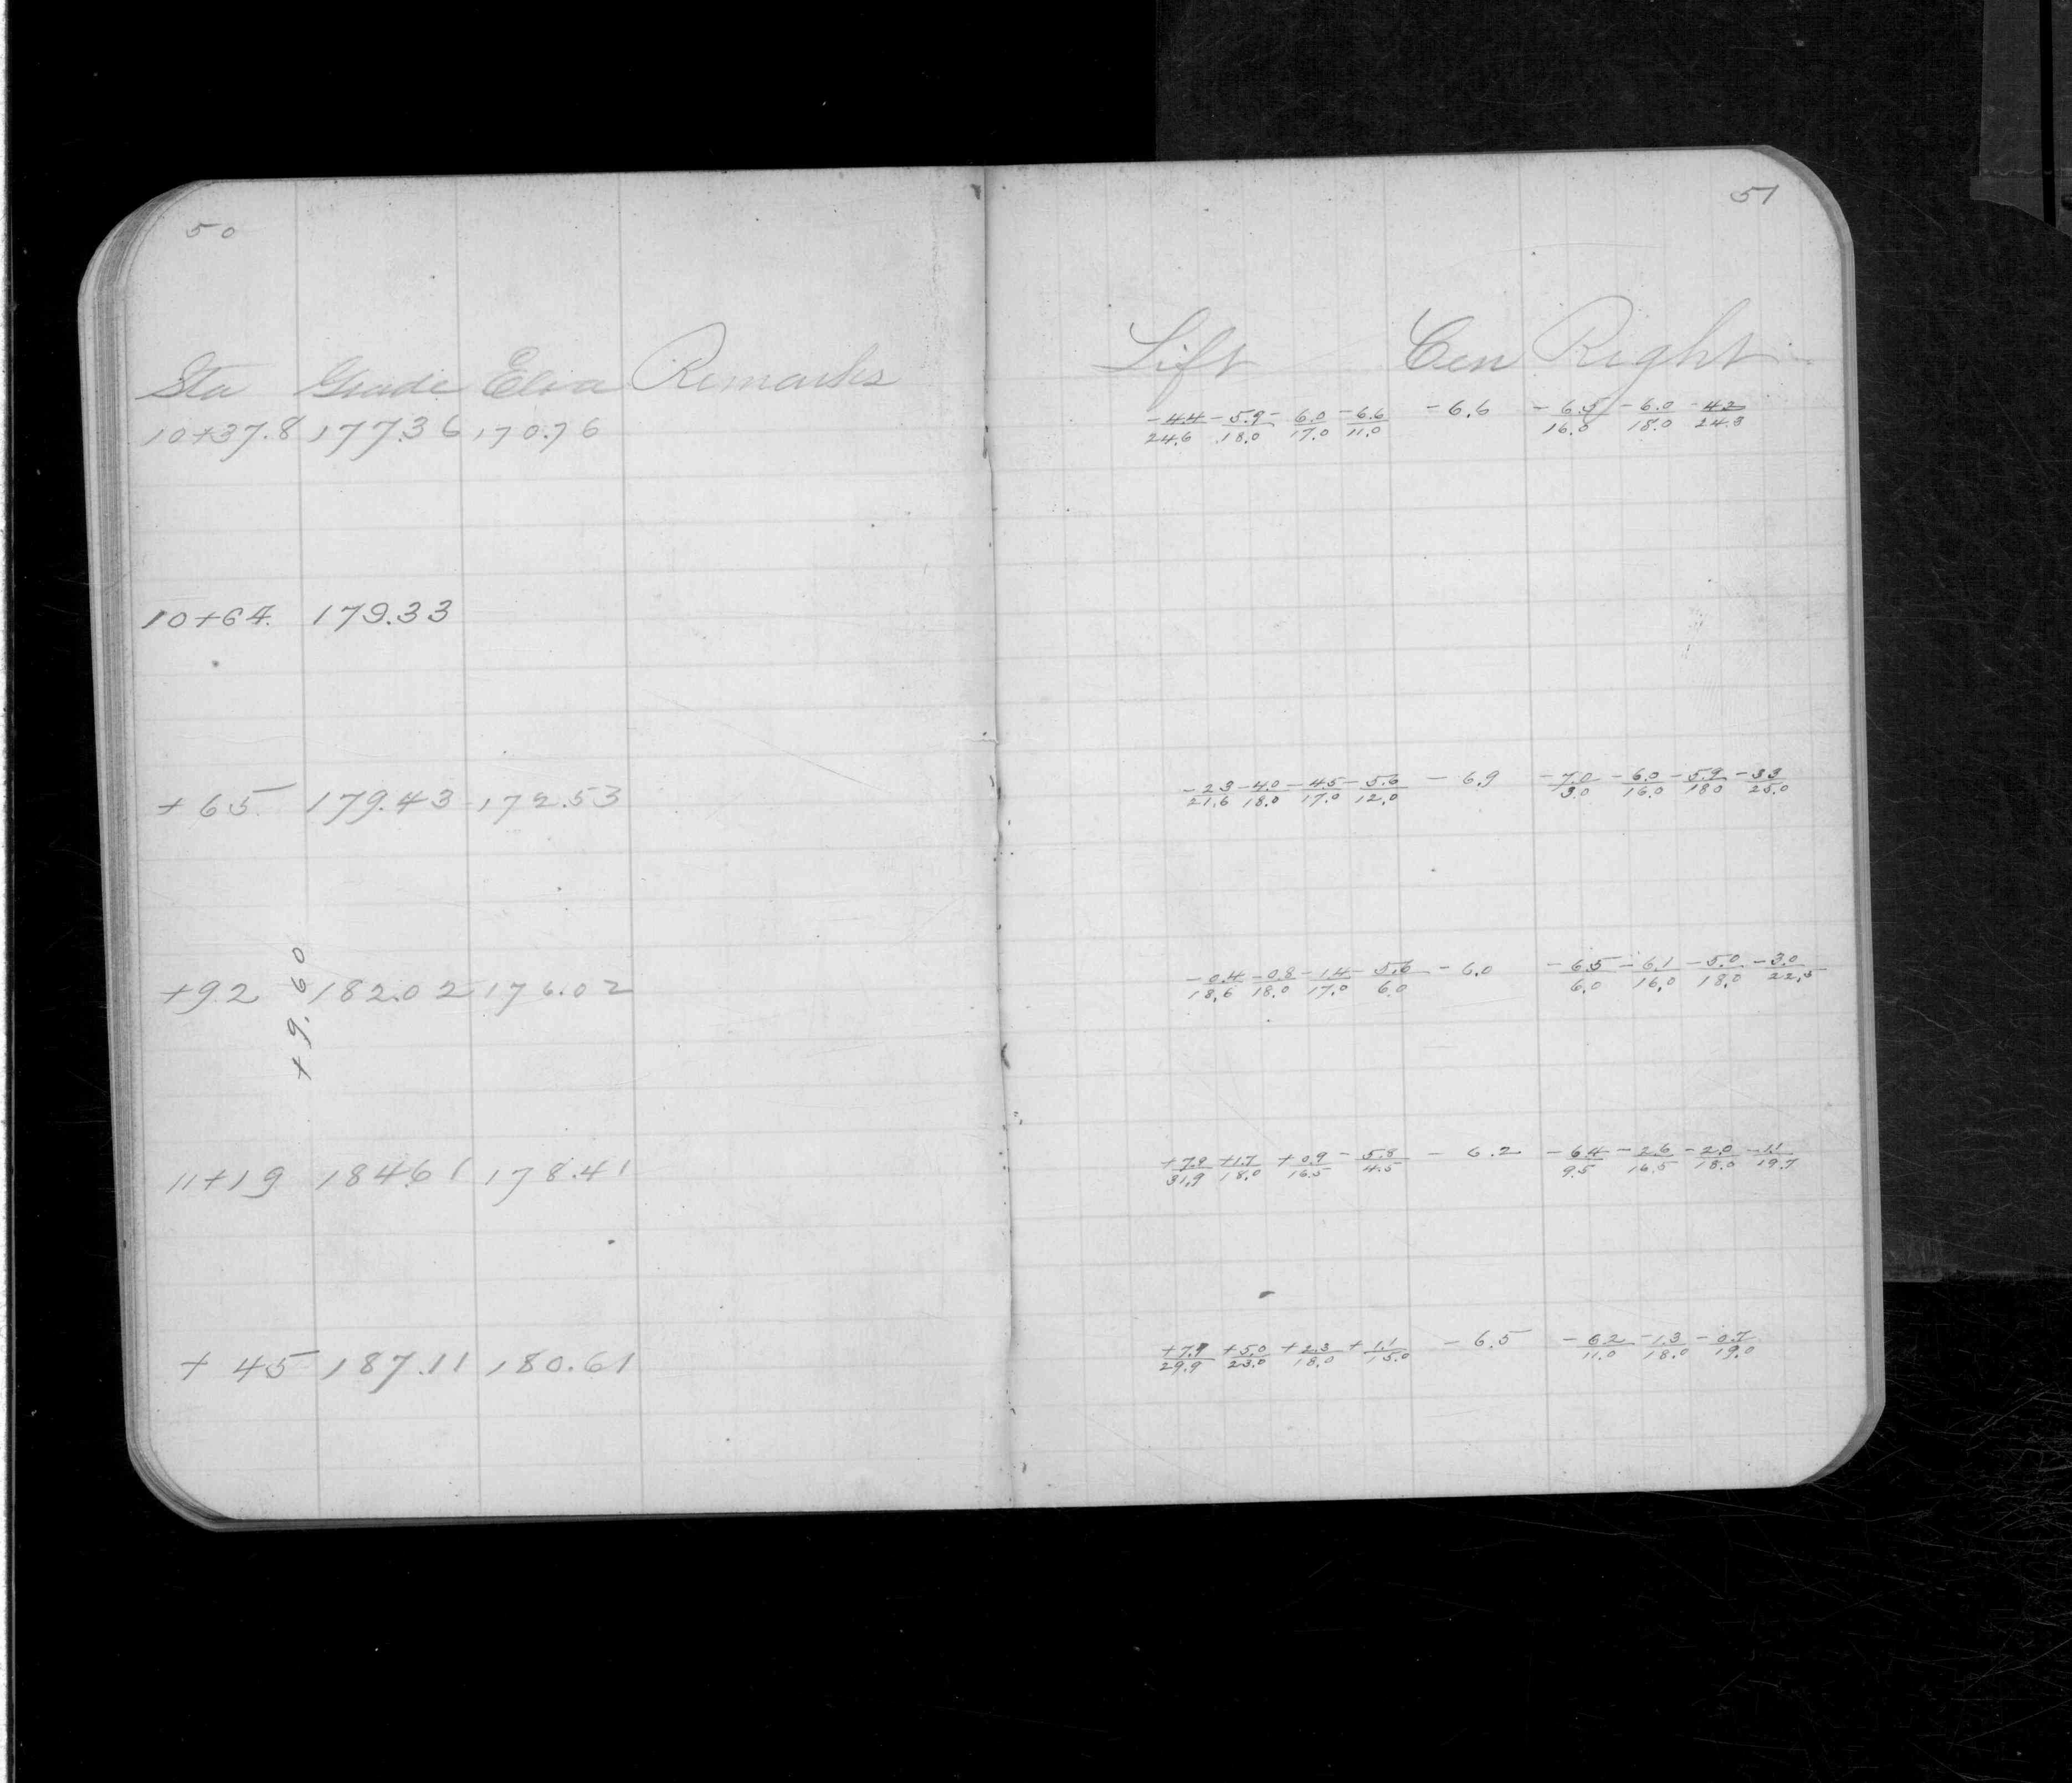 50
Sta Grade Eleva Remarks
10+37.8 177.36 170.76
10+64. 179.33
+65 179.43 172.53
+9.60
+92 182.02 176.02
11+19 184.61 178.41
+45 187.11 180.61
51
Left Cen Right
-4.4/24.6 -5.9/18.0 -6.0/17.0 -6.6/11.0 -6.6 -6.5/16.0 -6.0/18.0 -4.2/24.3
-2.3/21.6 -4.0/18.0 -4.5/17.0 -5.6/12.0 -6.9 -7.0/3.0 -6.0/16.0 -5.9/18.0 -3.3/25.0
-0.4/18.6 -0.8/18.0 -1.4/17.0 -5.6/6.0 -6.0 -6.5/6.0 -6.1/16.0 -5.0/18.0 -3.0/22.5
+7.9/31.9 +1.7/18.0 +0.9/16.5 -5.8/4.5 -6.2 -6.4/9.5 -2.6/16.5 -2.0/18.0 -1.1/19.7
+7.9/29.9 +5.0/23.0 +2.3/18.0 +1.1/15.0 -6.5 -6.2/11.0 -1.3/18.0 -0.7/19.0